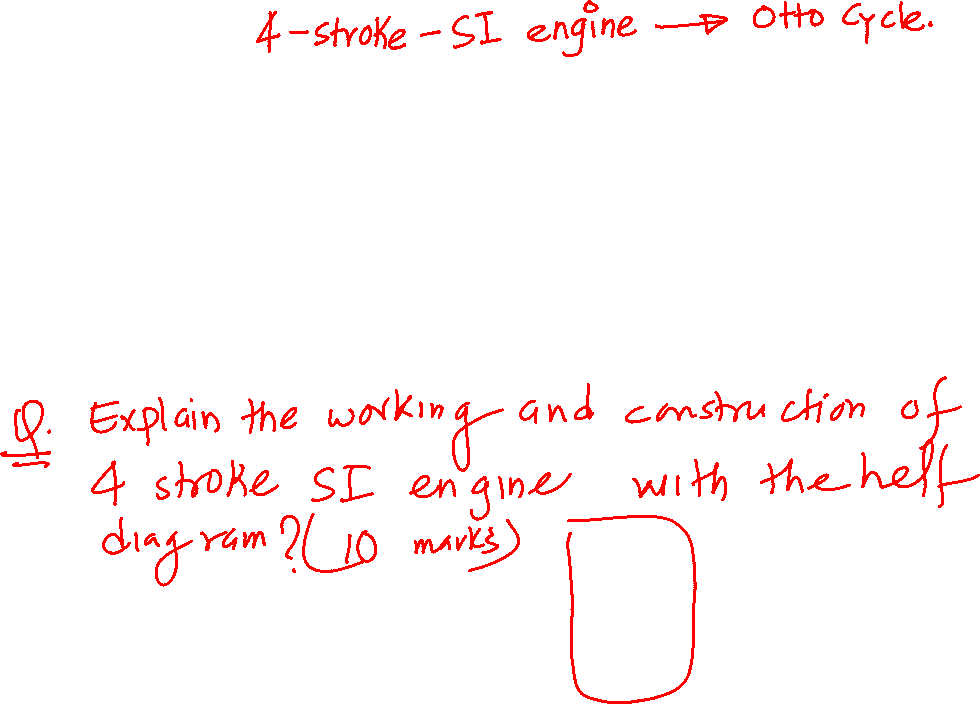 4-stroke-SI engine → Otto Cycle.
Q. Explain the working and construction of
4 stroke SI engine with the helf
diagram? (10 marks)